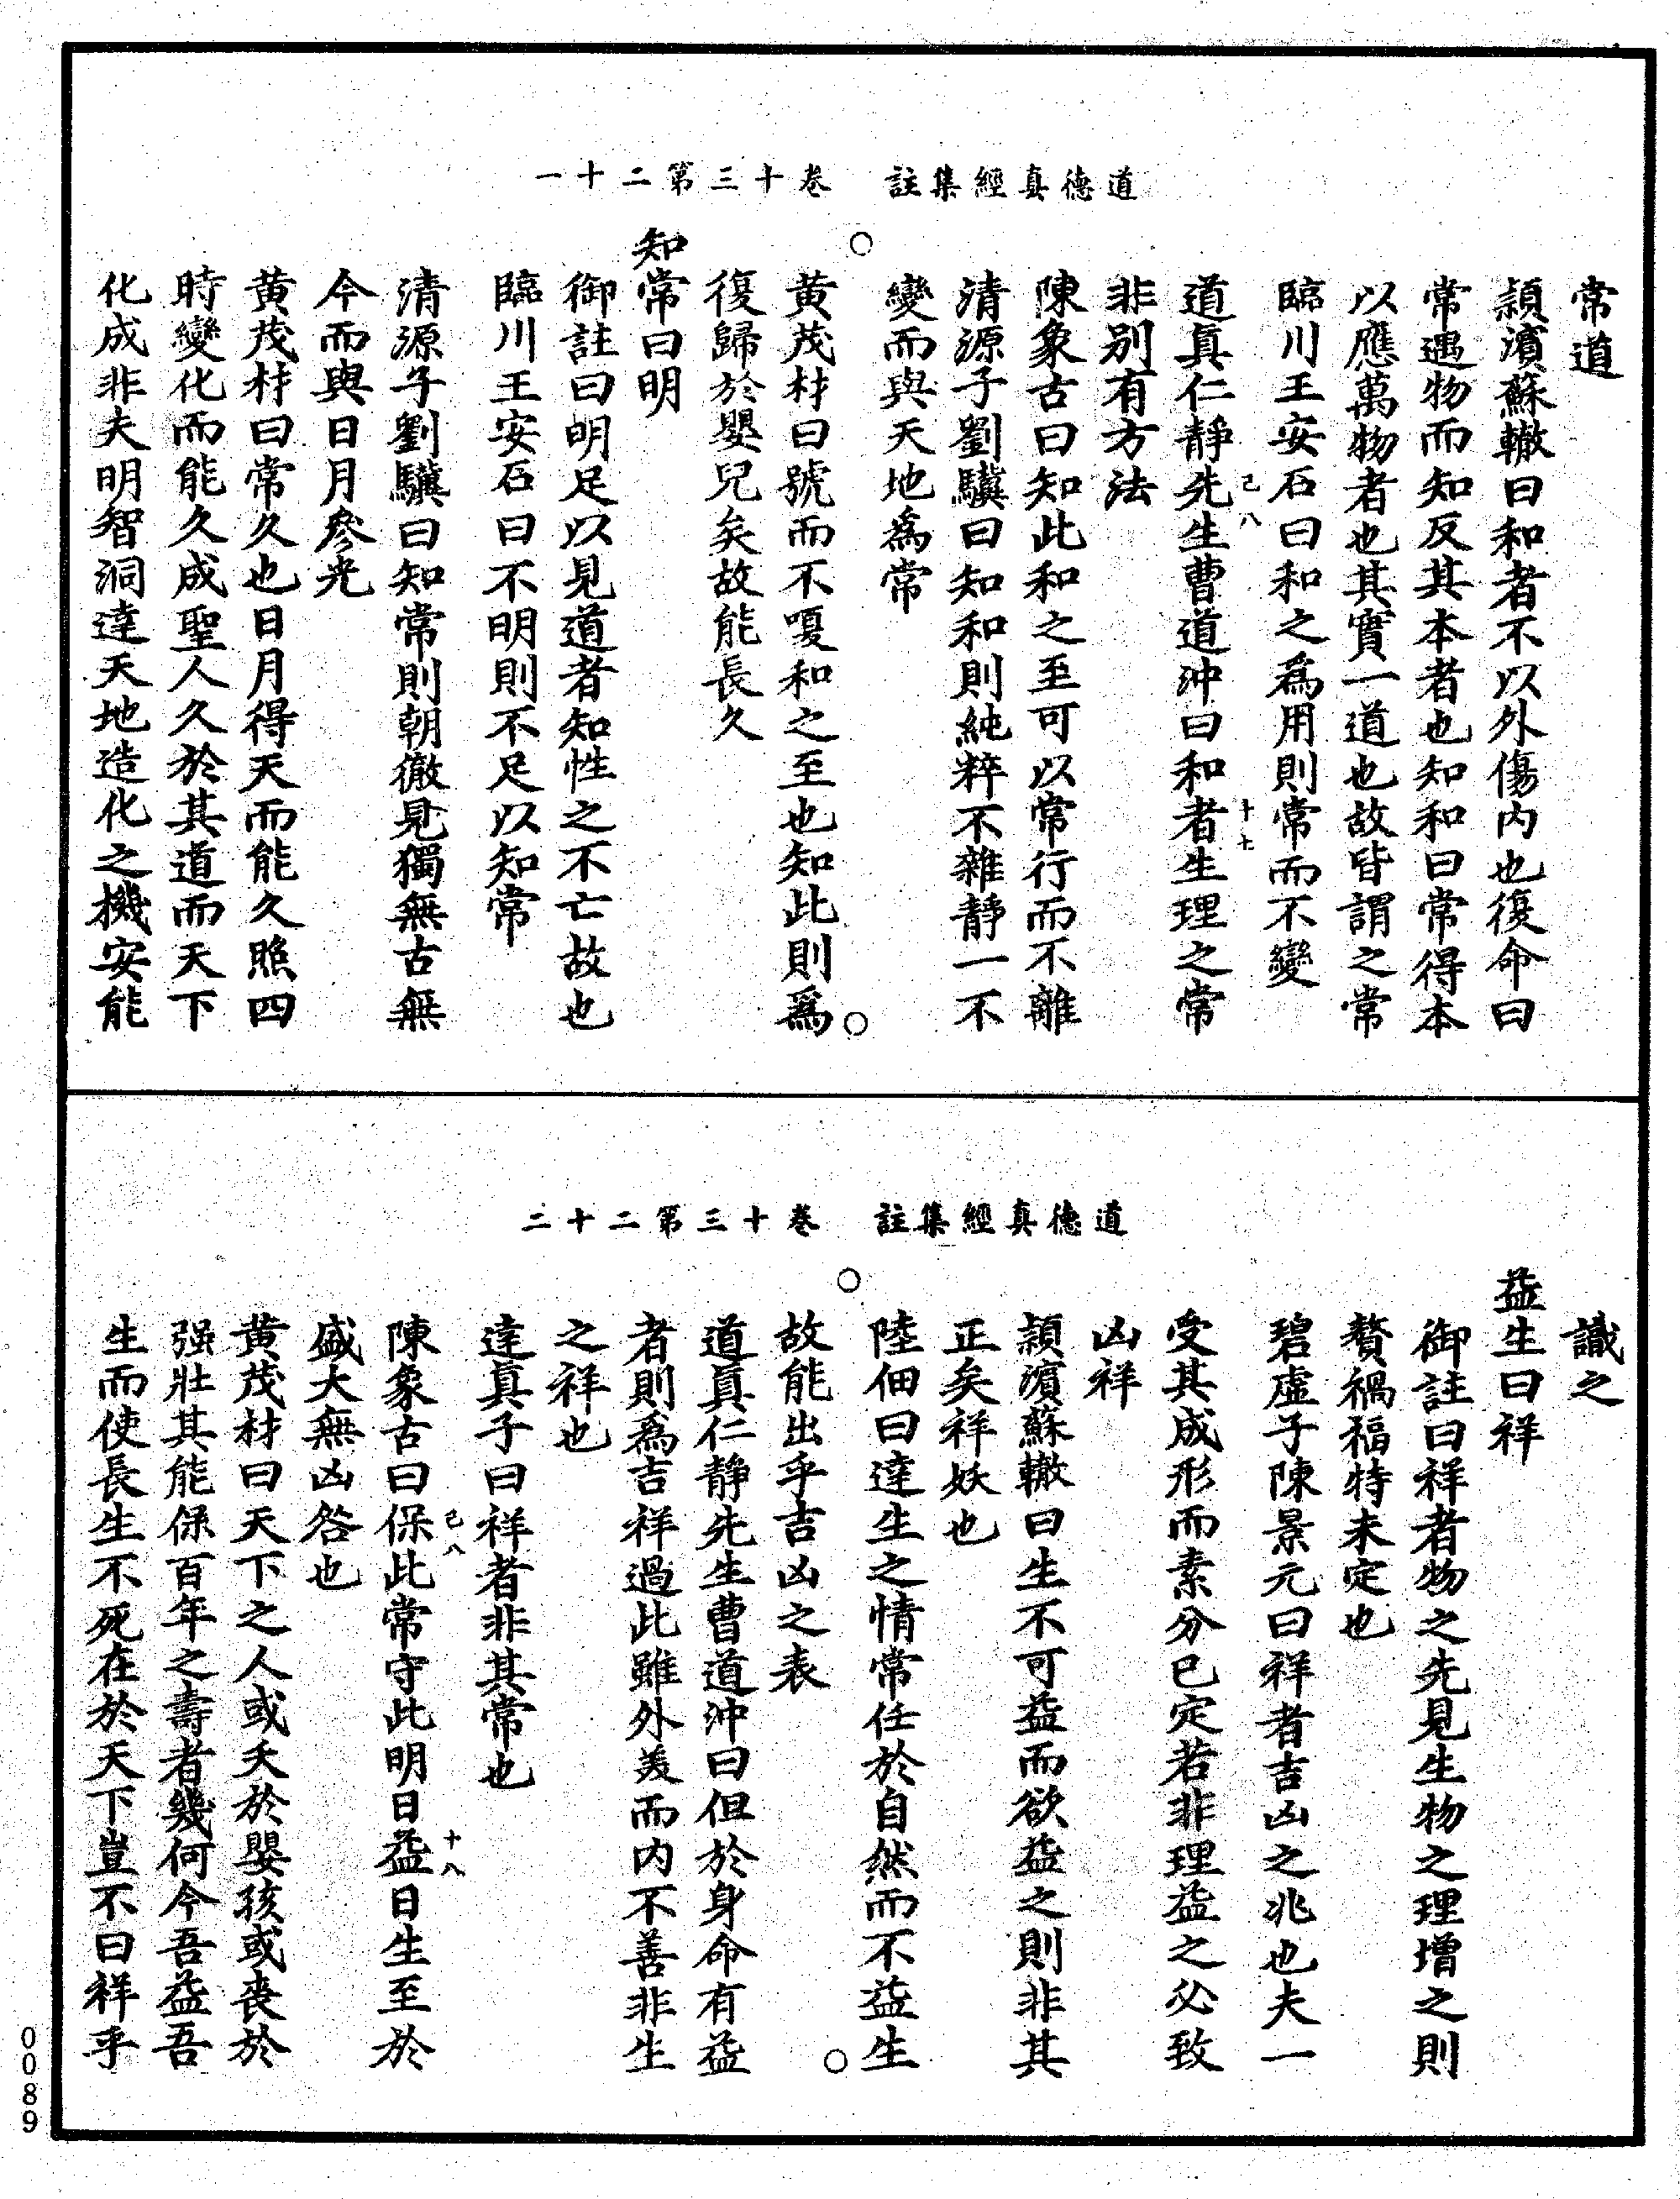 道德真經集註　卷十三第二十一
常道
潁濱蘇轍曰和者不以外傷內也復命曰
常遇物而知反其本者也知和曰常得本
以應萬物者也其實一道也故皆謂之常
臨川王安石曰和之爲用則常而不變
己八　十七
道真仁靜先生曹道沖曰和者生理之常
非別有方法
陳象古曰知此和之至可以常行而不離
清源子劉驥曰知和則純粹不雜靜一不
變而與天地爲常
○　○
黃茂材曰號而不嗄和之至也知此則爲
復歸於嬰兒矣故能長久
知常曰明
御註曰明足以見道者知性之不亡故也
臨川王安石曰不明則不足以知常
清源子劉驥曰知常則朝徹見獨無古無
今而與日月參光
黃茂材曰常久也日月得天而能久照四
時變化而能久成聖人久於其道而天下
化成非夫明智洞達天地造化之機安能
道德真經集註　卷十三第二十二
識之
益生曰祥
御註曰祥者物之先見生物之理增之則
贅禍福特未定也
碧虛子陳景元曰祥者吉凶之兆也夫一
受其成形而素分已定若非理益之必致
凶祥
潁濱蘇轍曰生不可益而欲益之則非其
正矣祥妖也
陸佃曰達生之情常任於自然而不益生
○　○
故能出乎吉凶之表
道真仁靜先生曹道沖曰但於身命有益
者則爲吉祥過此雖外美而內不善非生
之祥也
達真子曰祥者非其常也
己八　十八
陳象古曰保此常守此明日益日生至於
盛大無凶咎也
黃茂材曰天下之人或夭於嬰孩或喪於
强壯其能保百年之壽者幾何今吾益吾
生而使長生不死在於天下豈不曰祥乎
0089